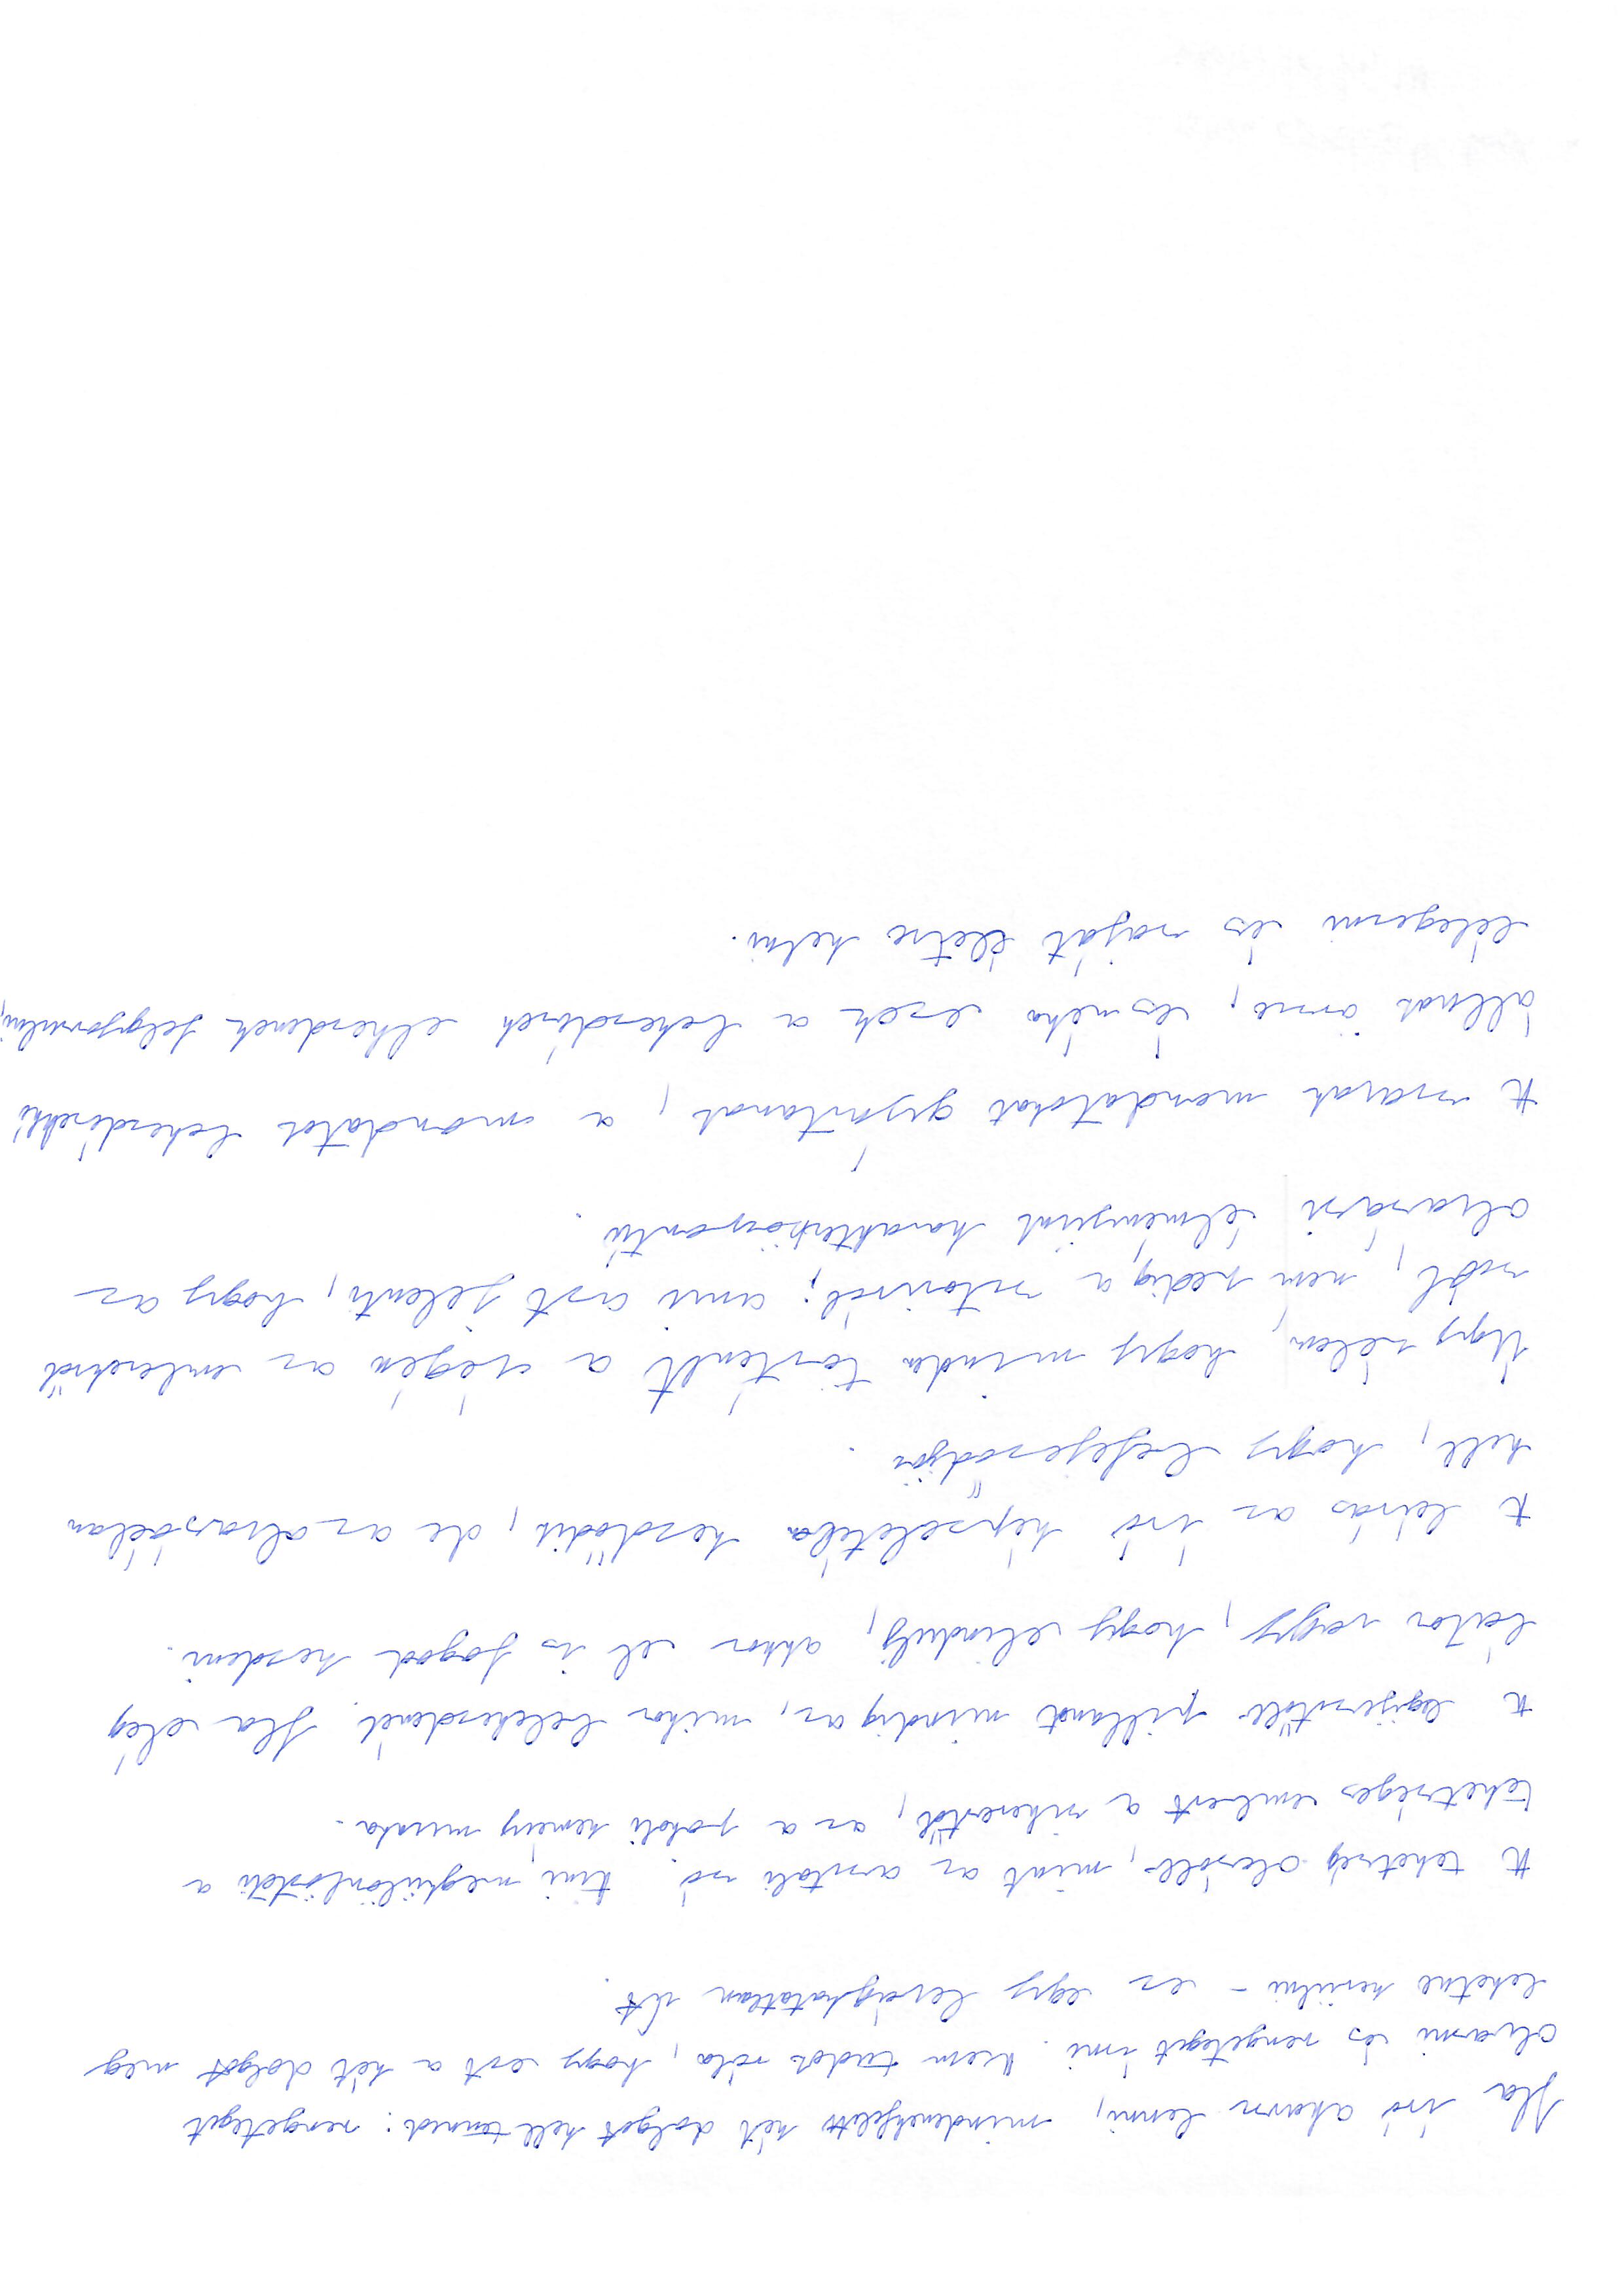 Ha író akarsz lenni, mindenekfelett két dolgot kell tenned: rengeteget
olvasni és rengeteget írni. Nem tudok róla, hogy ezt a két dolgot meg
lehetne kerülni – ez egy levághatatlan út.
A tehetség olcsóbb, mint az asztali só. Ami megkülönbözteti a
tehetséges embert a sikerestől, az a pokoli kemény munka.
A legijesztőbb pillanat mindig az, mikor belekezdenél. Ha elég
bátor vagy, hogy elindulj, akkor el is fogod kezdeni.
A leírás az író képzeletében kezdődik, de az olvasóéban
kell, hogy befejeződjön.
Úgy vélem, hogy minden történet a végén az emberekről
szól, nem pedig a sztoriról; ami azt jelenti, hogy az
olvasási élményünk karakterközpontú.
A szavak mondatokat gyártanak, a mondatok bekezdésekké
állnak össze, és néha ezek a bekezdések elkezdenek felgyorsulni,
lélegezni és saját életre kelni.